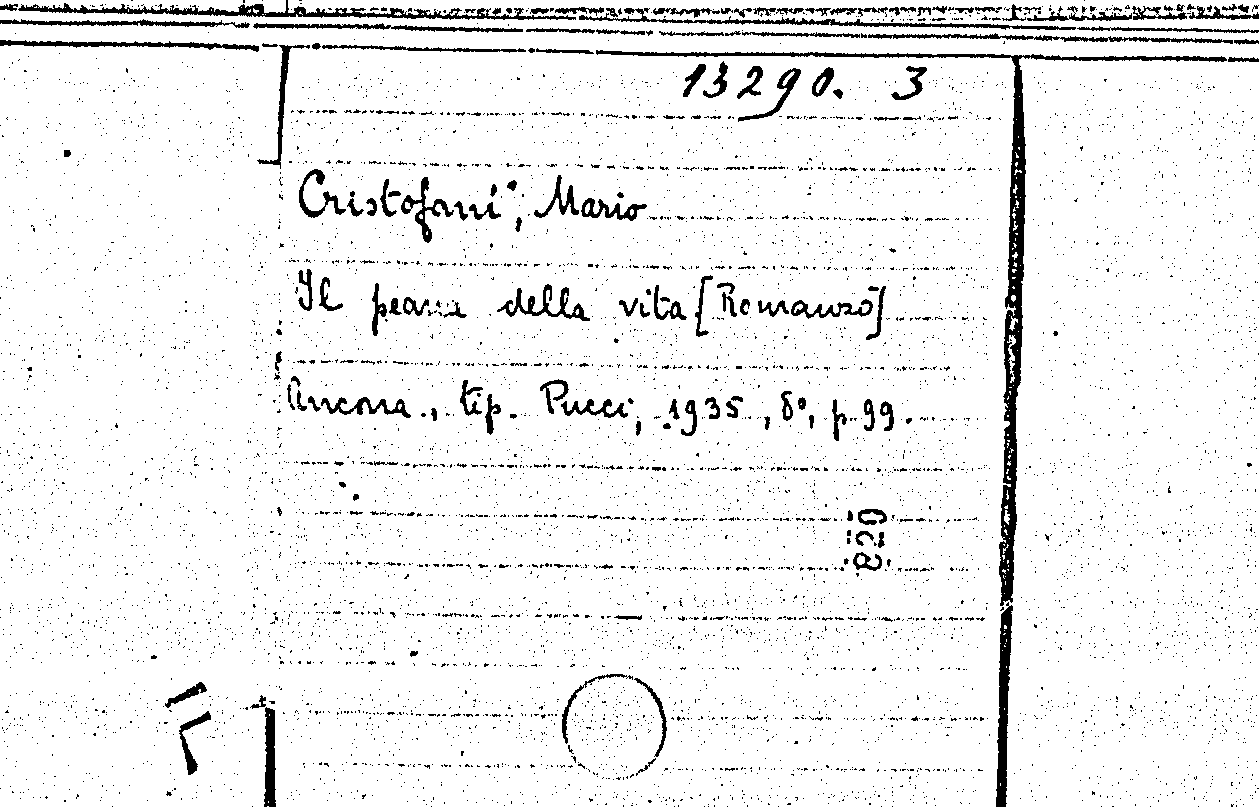 13290. 3
Cristofani, Mario
Il peana della vita [Romanzo]
Ancona., tip. Pucci, 1935, 8°, p. 99.